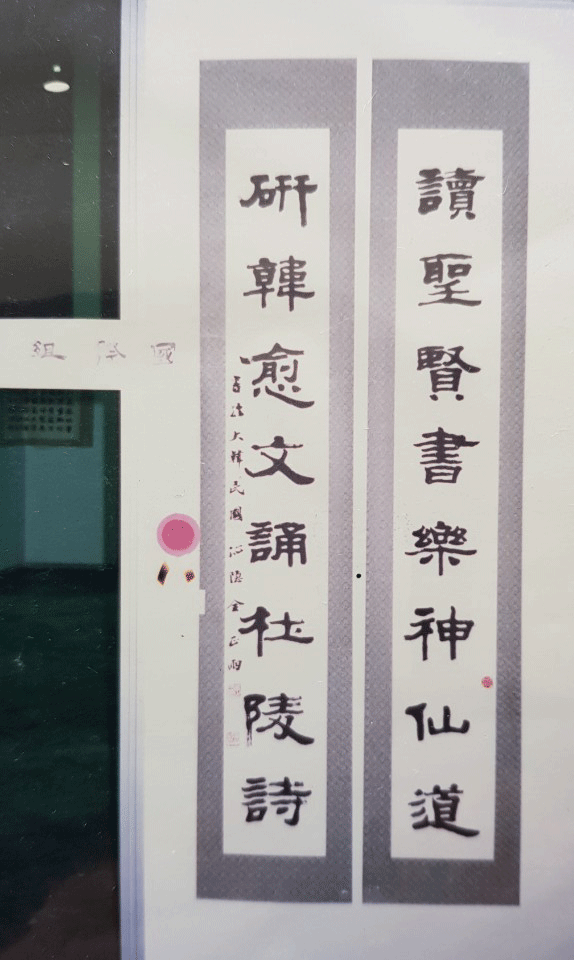 讀聖賢書樂神仙道
研韓愈文誦杜陵詩
大韓民國
國際組